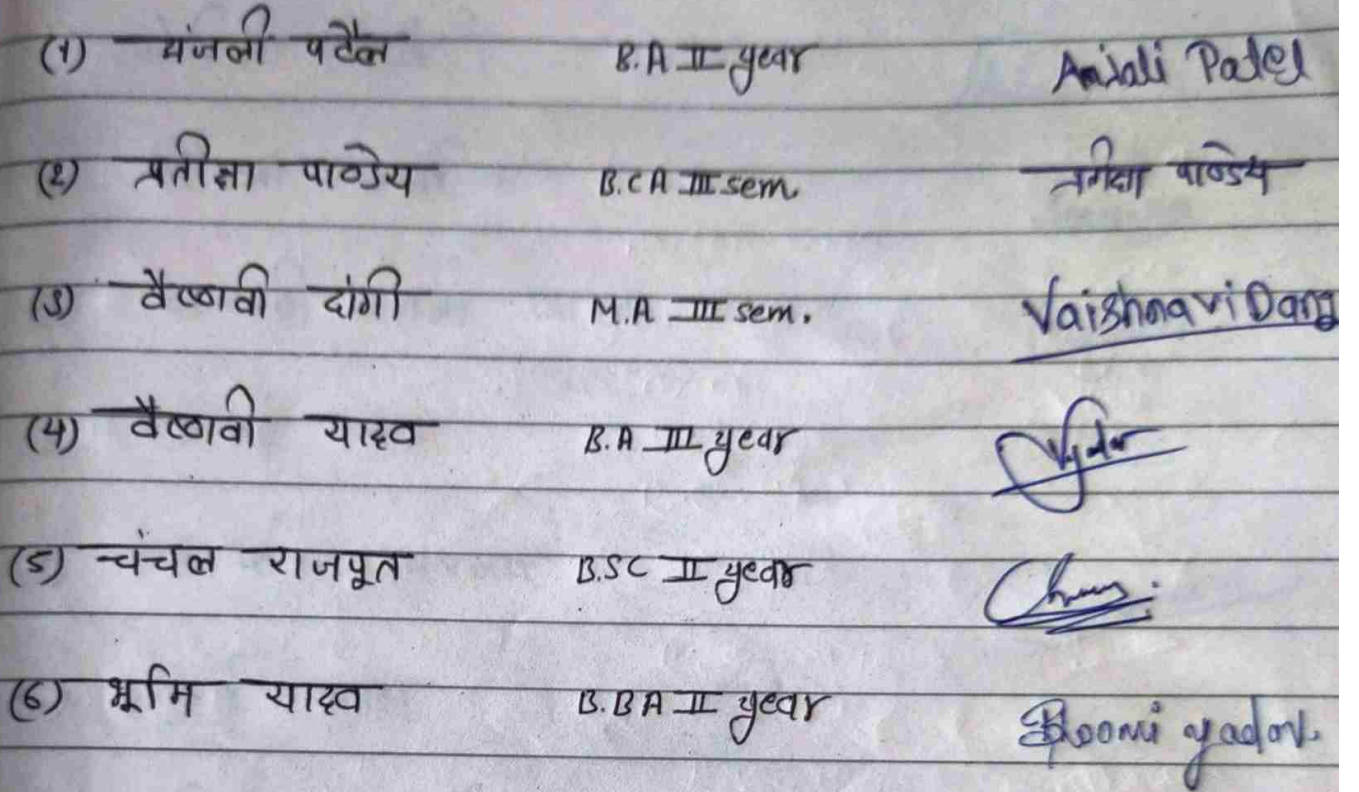 (1) अंजली पटैल B.A II year Anjali Patel
(2) प्रतीक्षा पाण्डेय B.C A III sem. प्रतीक्षा पाण्डेय
(3) वैष्णवी दांगी M.A III sem. Vaishnavi Dang
(4) वैष्णवी यादव B.A III year
(5) चंचल राजपूत B.SC II year
(6) भूमि यादव B.B A II year Bhoomi yadav.